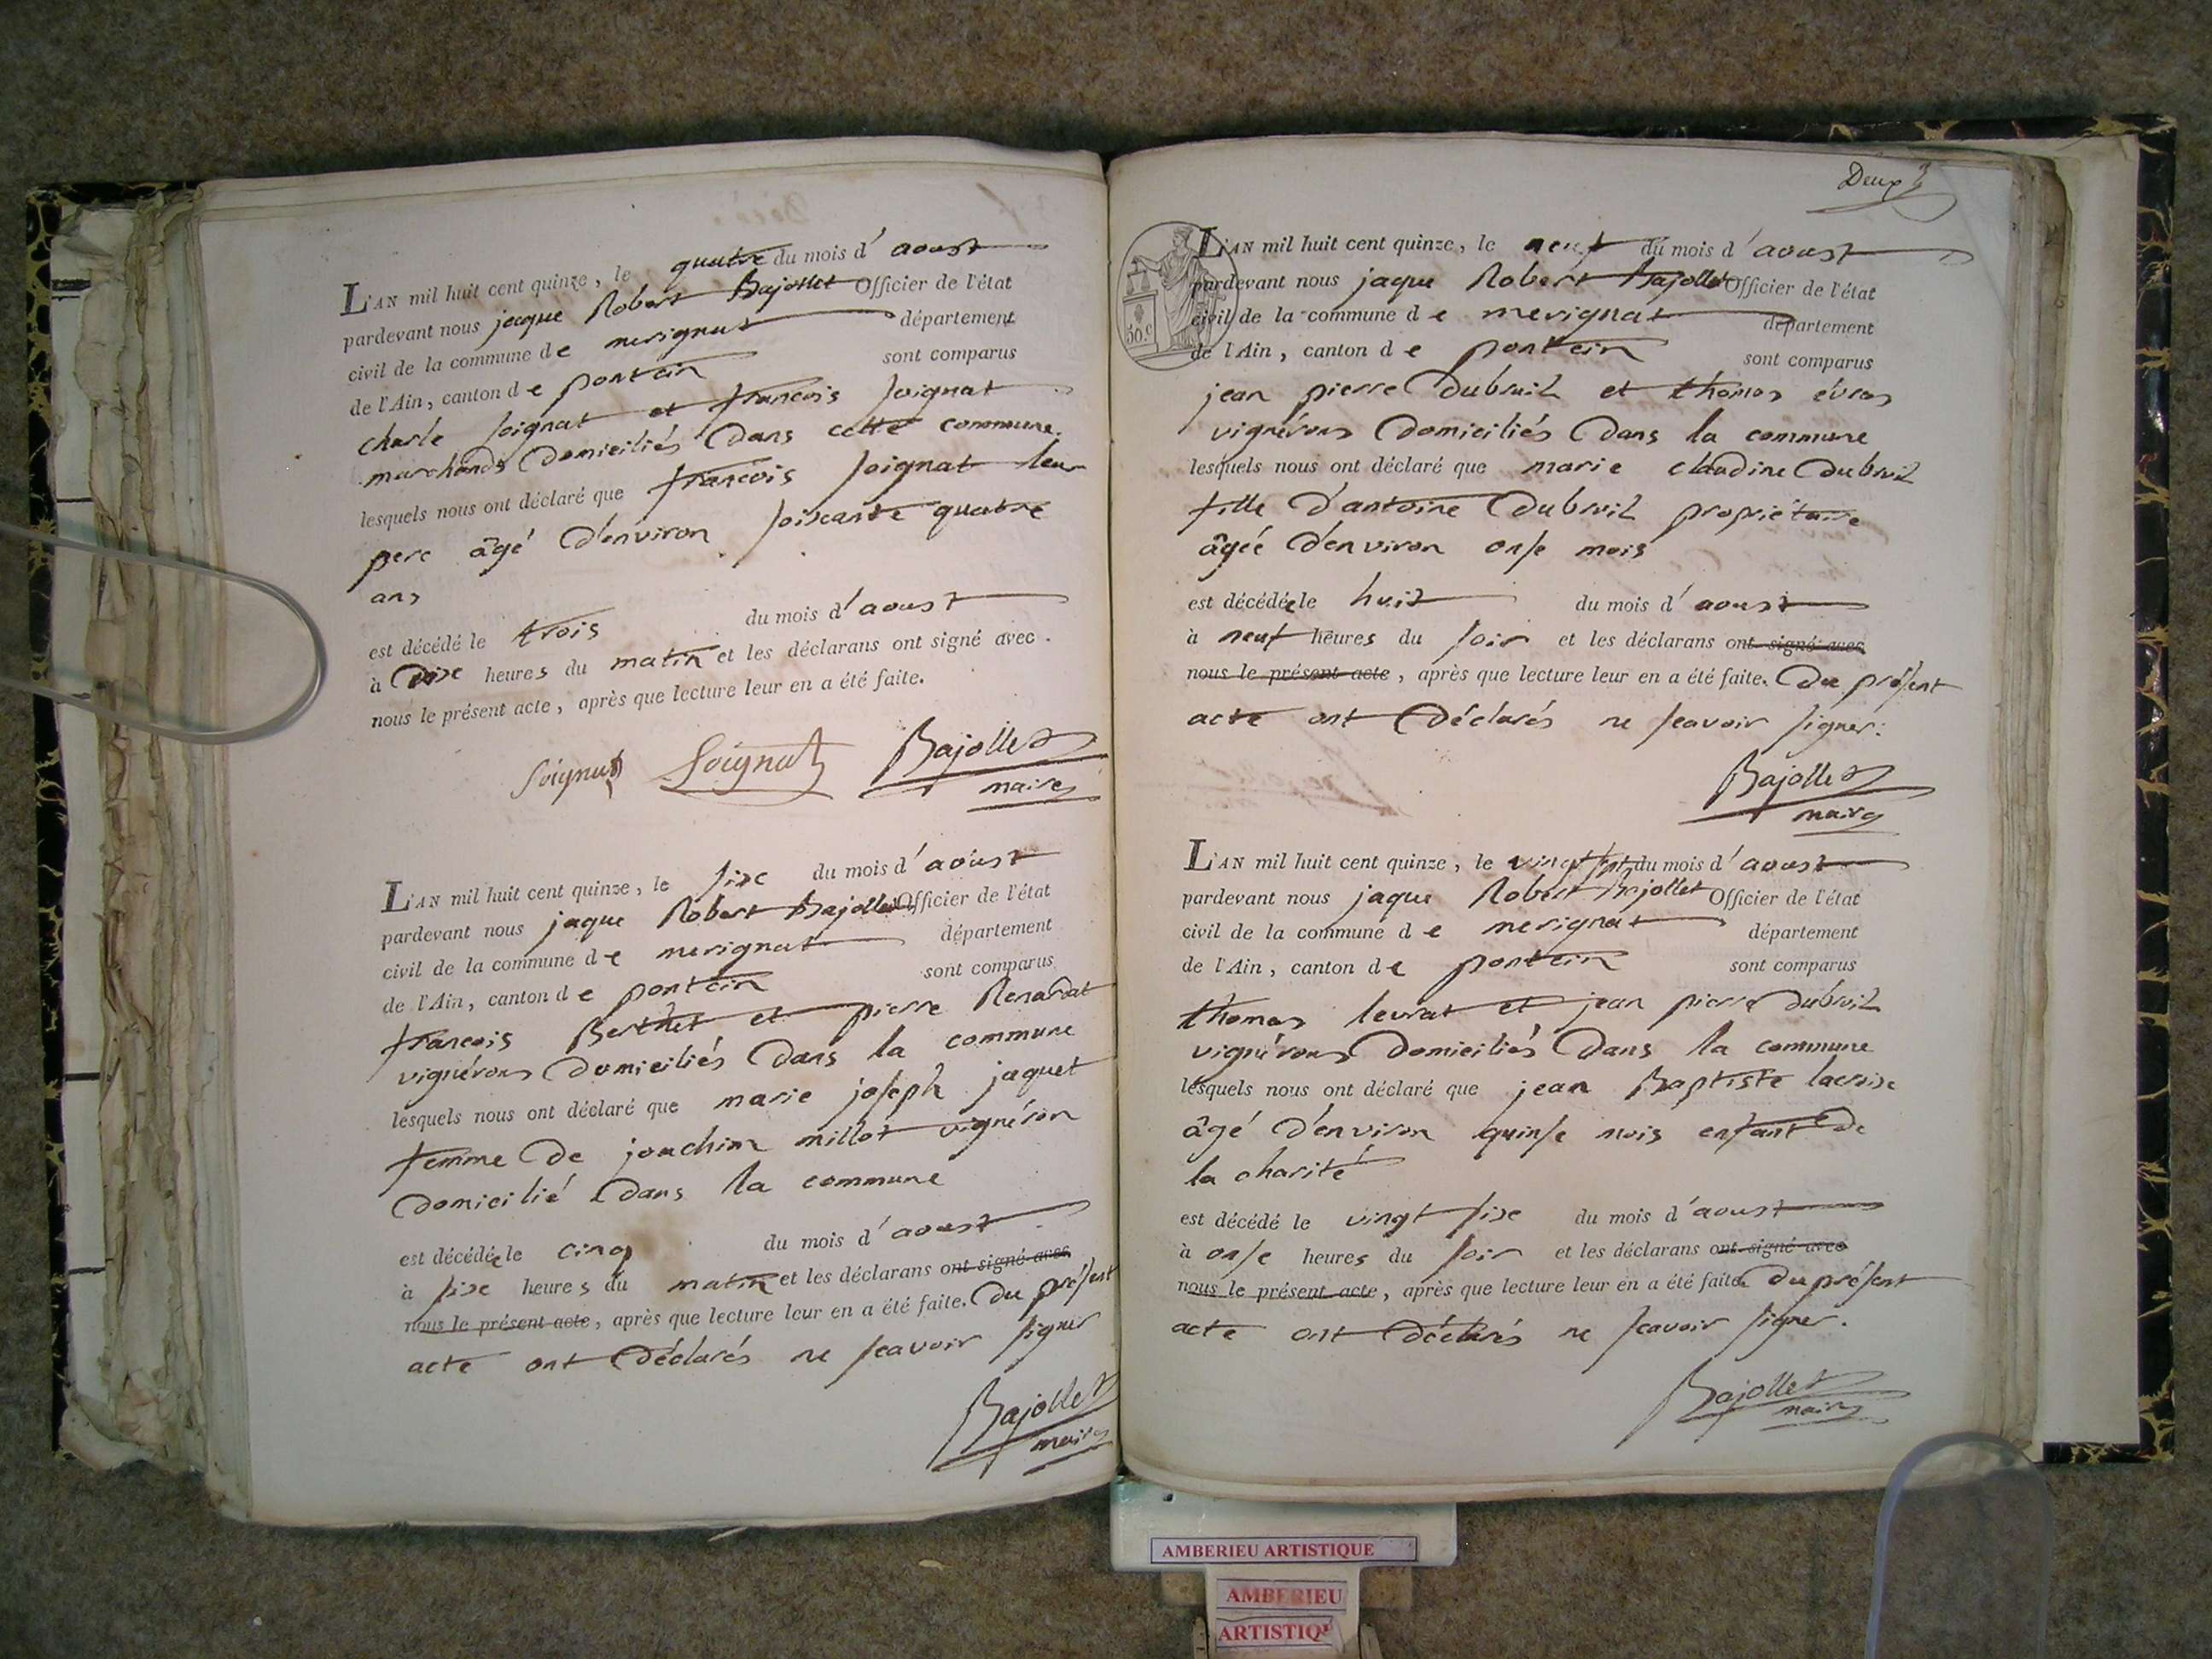 L'AN mil huit cent quinze, le quatre du mois d'aoust
pardevant nous jaque Robert Bajollet Officier de l'état
civil de la commune de merignat département
de l'Ain, canton de pontein sont comparus
charle soignat et francois soignat
marchands domiciliés dans cette commune.
lesquels nous ont déclaré que francois soignat leur
pere âgé d'environ soixante quatre
ans
est décédé le trois du mois d'aoust
à dix heures du matin et les déclarans ont signé avec
nous le présent acte, après que lecture leur en a été faite.
Soignat Soignat Bajollet
maire
L'AN mil huit cent quinze, le six du mois d'aoust
pardevant nous jaque Robert Bajollet Officier de l'état
civil de la commune de merignat département
de l'Ain, canton de pontein sont comparus
francois Berthet et pierre Renardat
vignérons domiciliés dans la commune
lesquels nous ont déclaré que marie joseph jaquet
femme de joachim millot vignéron
domicilié dans la commune
est décédée le cinq du mois d'aoust
à six heures du matin et les déclarans ont signé avec
nous le présent acte, après que lecture leur en a été faite. du présent
acte ont déclarés ne scavoir signer
Bajollet
maire
Deux
L'AN mil huit cent quinze, le neuf du mois d'aoust
pardevant nous jaque Robert Bajollet Officier de l'état
civil de la commune de merignat département
de l'Ain, canton de pontein sont comparus
50.c
jean pierre Dubruil et thomas évras
vignérons domiciliés dans la commune
lesquels nous ont déclaré que marie claudine Dubruil
fille d'antoine Dubruil propriétaire
âgée d'environ onse mois
est décédée le huit du mois d'aoust
à neuf heures du soir et les déclarans ont signé avec
nous le présent acte, après que lecture leur en a été faite. du présent
acte ont déclarés ne scavoir signer.
Bajollet
maire
L'AN mil huit cent quinze, le vingt sept du mois d'aoust
pardevant nous jaque Robert Bajollet Officier de l'état
civil de la commune de merignat département
de l'Ain, canton de pontein sont comparus
thomas levrat et jean pierre Dubruil
vignérons domiciliés dans la commune
lesquels nous ont déclaré que jean Baptiste lacroix
âgé d'environ quinse mois enfant de
la charité
est décédé le vingt six du mois d'aoust
à onse heures du soir et les déclarans ont signé avec
nous le présent acte, après que lecture leur en a été faite. du présent
acte ont déclarés ne scavoir signer.
Bajollet
maire
AMBERIEU ARTISTIQUE
AMBERIEU
ARTISTIQU